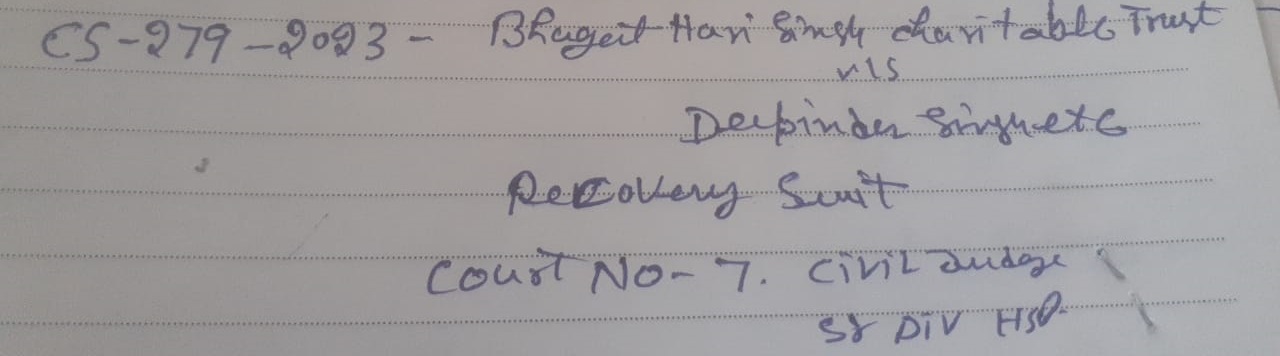 CS-279-2023- Bhagat Hari Singh charitable Trust
v/s
Deepinder Singh etc
Recovery Suit
Court No-7. Civil Judge
Sr Div HSP.